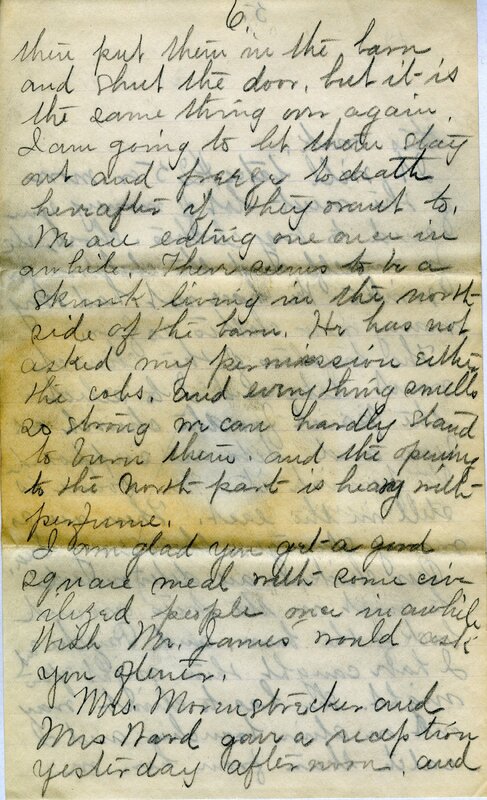 6
then put them in the barn
and shut the door, but it is
the same thing over again.
I am going to let them stay
out and freeze to death
hereafter if they want to.
We are eating one once in
awhile. There seems to be a
skunk living in the north
side of the barn. He has not
asked my permission either
the cobs, and everything smells
so strong we can hardly stand
to burn them. and the opening
to the north part is heavy with
perfume.
I am glad you get a good
square meal with some civ
ilized people once in awhile
Wish Mr. James would ask
you oftener.
Mrs. Morenstrecker and
Mrs Ward gave a reception
yesterday afternoon, and